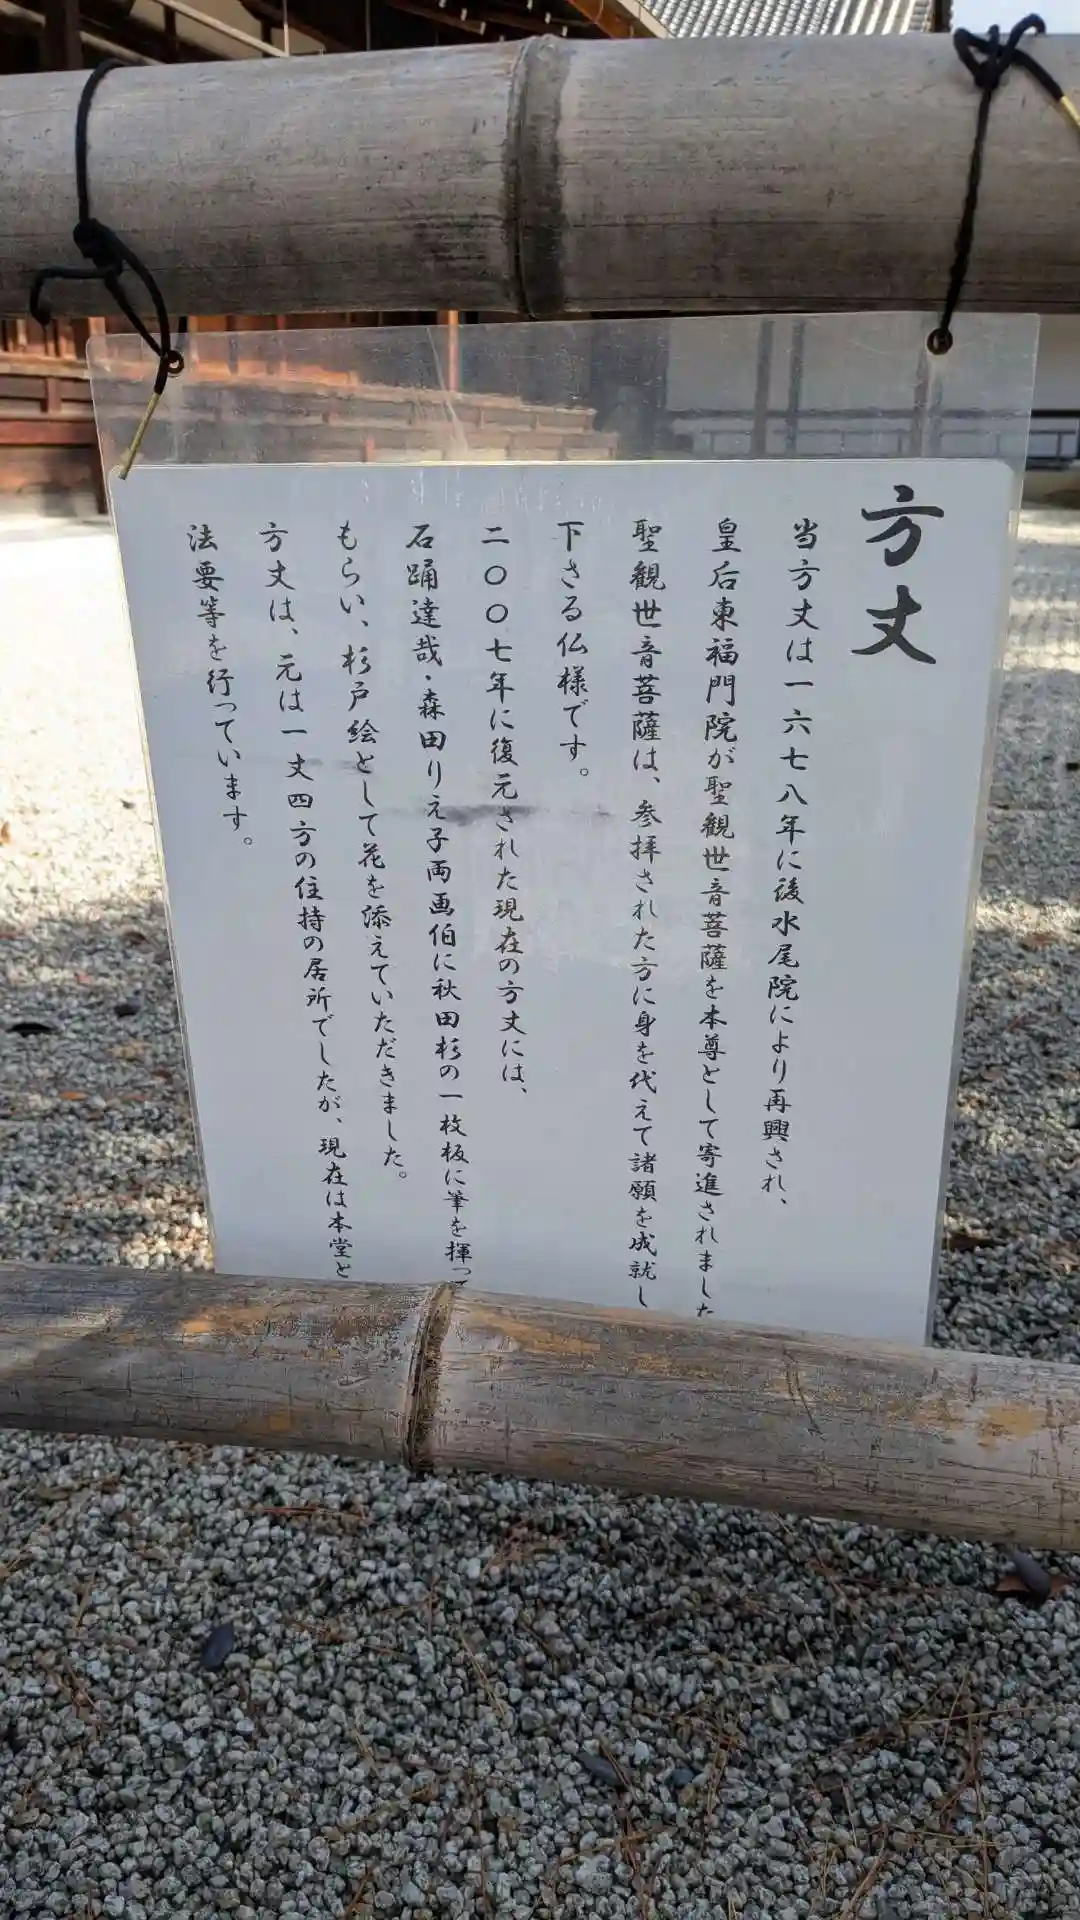 方丈
当方丈は一六七八年に後水尾院により再興され、
皇后東福門院が聖観世音菩薩を本尊として寄進されました
聖観世音菩薩は、参拝された方に身を代えて諸願を成就し
下さる仏様です。
二〇〇七年に復元された現在の方丈には、
石踊達哉・森田りえ子両画伯に秋田杉の一枚板に筆を揮って
もらい、杉戸絵として花を添えていただきました。
方丈は、元は一丈四方の住持の居所でしたが、現在は本堂と
法要等を行っています。